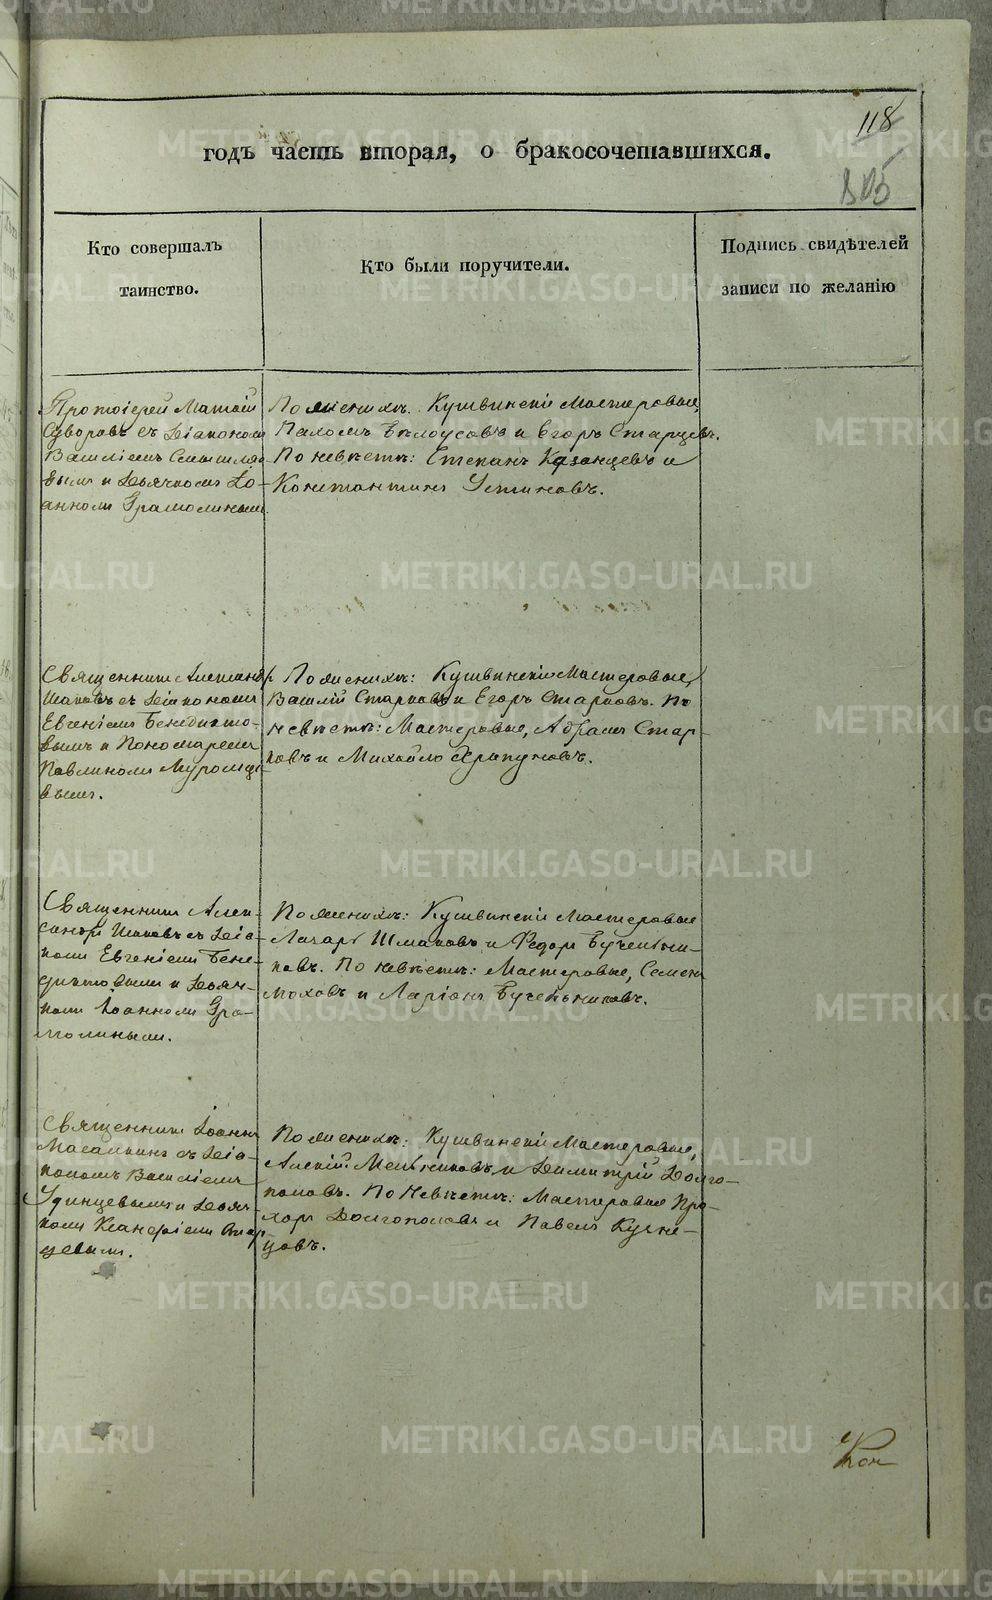 118
годъ часть вторая, о бракосочетавшихся.
Кто совершалъ
таинство.
Кто были поручители.
Подпись свидѣтелей
записи по желанію
Протоіерей Матѳій
Суворовъ съ діакономъ
Василіемъ Смышляе-
вымъ и дьячкомъ Іо-
анномъ Грамолинымъ.
По женихѣ: Кушвинскіе Мастеровые,
Пахомъ Бѣлоусовъ и Егоръ Старцевъ.
По невѣстѣ: Степанъ Казанцевъ и
Константинъ Устиновъ.
Священникъ Александръ
съ діакономъ
Евгеніемъ Бенедикто-
вымъ и Пономаремъ
Павлиномъ
вымъ.
По женихѣ: Кушвинскіе Мастеровые,
Василій Старковъ и Егоръ Старковъ. По
невѣстѣ: Мастеровые, Абрамъ Стар-
ковъ и Михайло Хрипуновъ.
Священникъ Алек-
сандръ съ діа-
кономъ Евгеніемъ Бене-
диктовымъ и дьяч-
комъ Іоанномъ Гра-
молинымъ.
По женихѣ: Кушвинскіе Мастеровые
Лазарь Шмаковъ и Ѳедоръ Бучельни-
ковъ. По невѣстѣ: Мастеровые, Семенъ
Моховъ и Ларіонъ Бучельниковъ.
Священникъ Іоаннъ
съ діа-
кономъ Василіемъ
Удинцевымъ и дьяч-
комъ Ксанфіемъ Стар-
цевымъ.
По женихѣ: Кушвинскіе Мастеровые,
Алексій Мельниковъ и Димитрій Долго-
половъ. По невѣстѣ: Мастеровые Про-
хоръ Долгополовъ и Павелъ Кузне-
цовъ.
METRIKI.GASO-URAL.RU